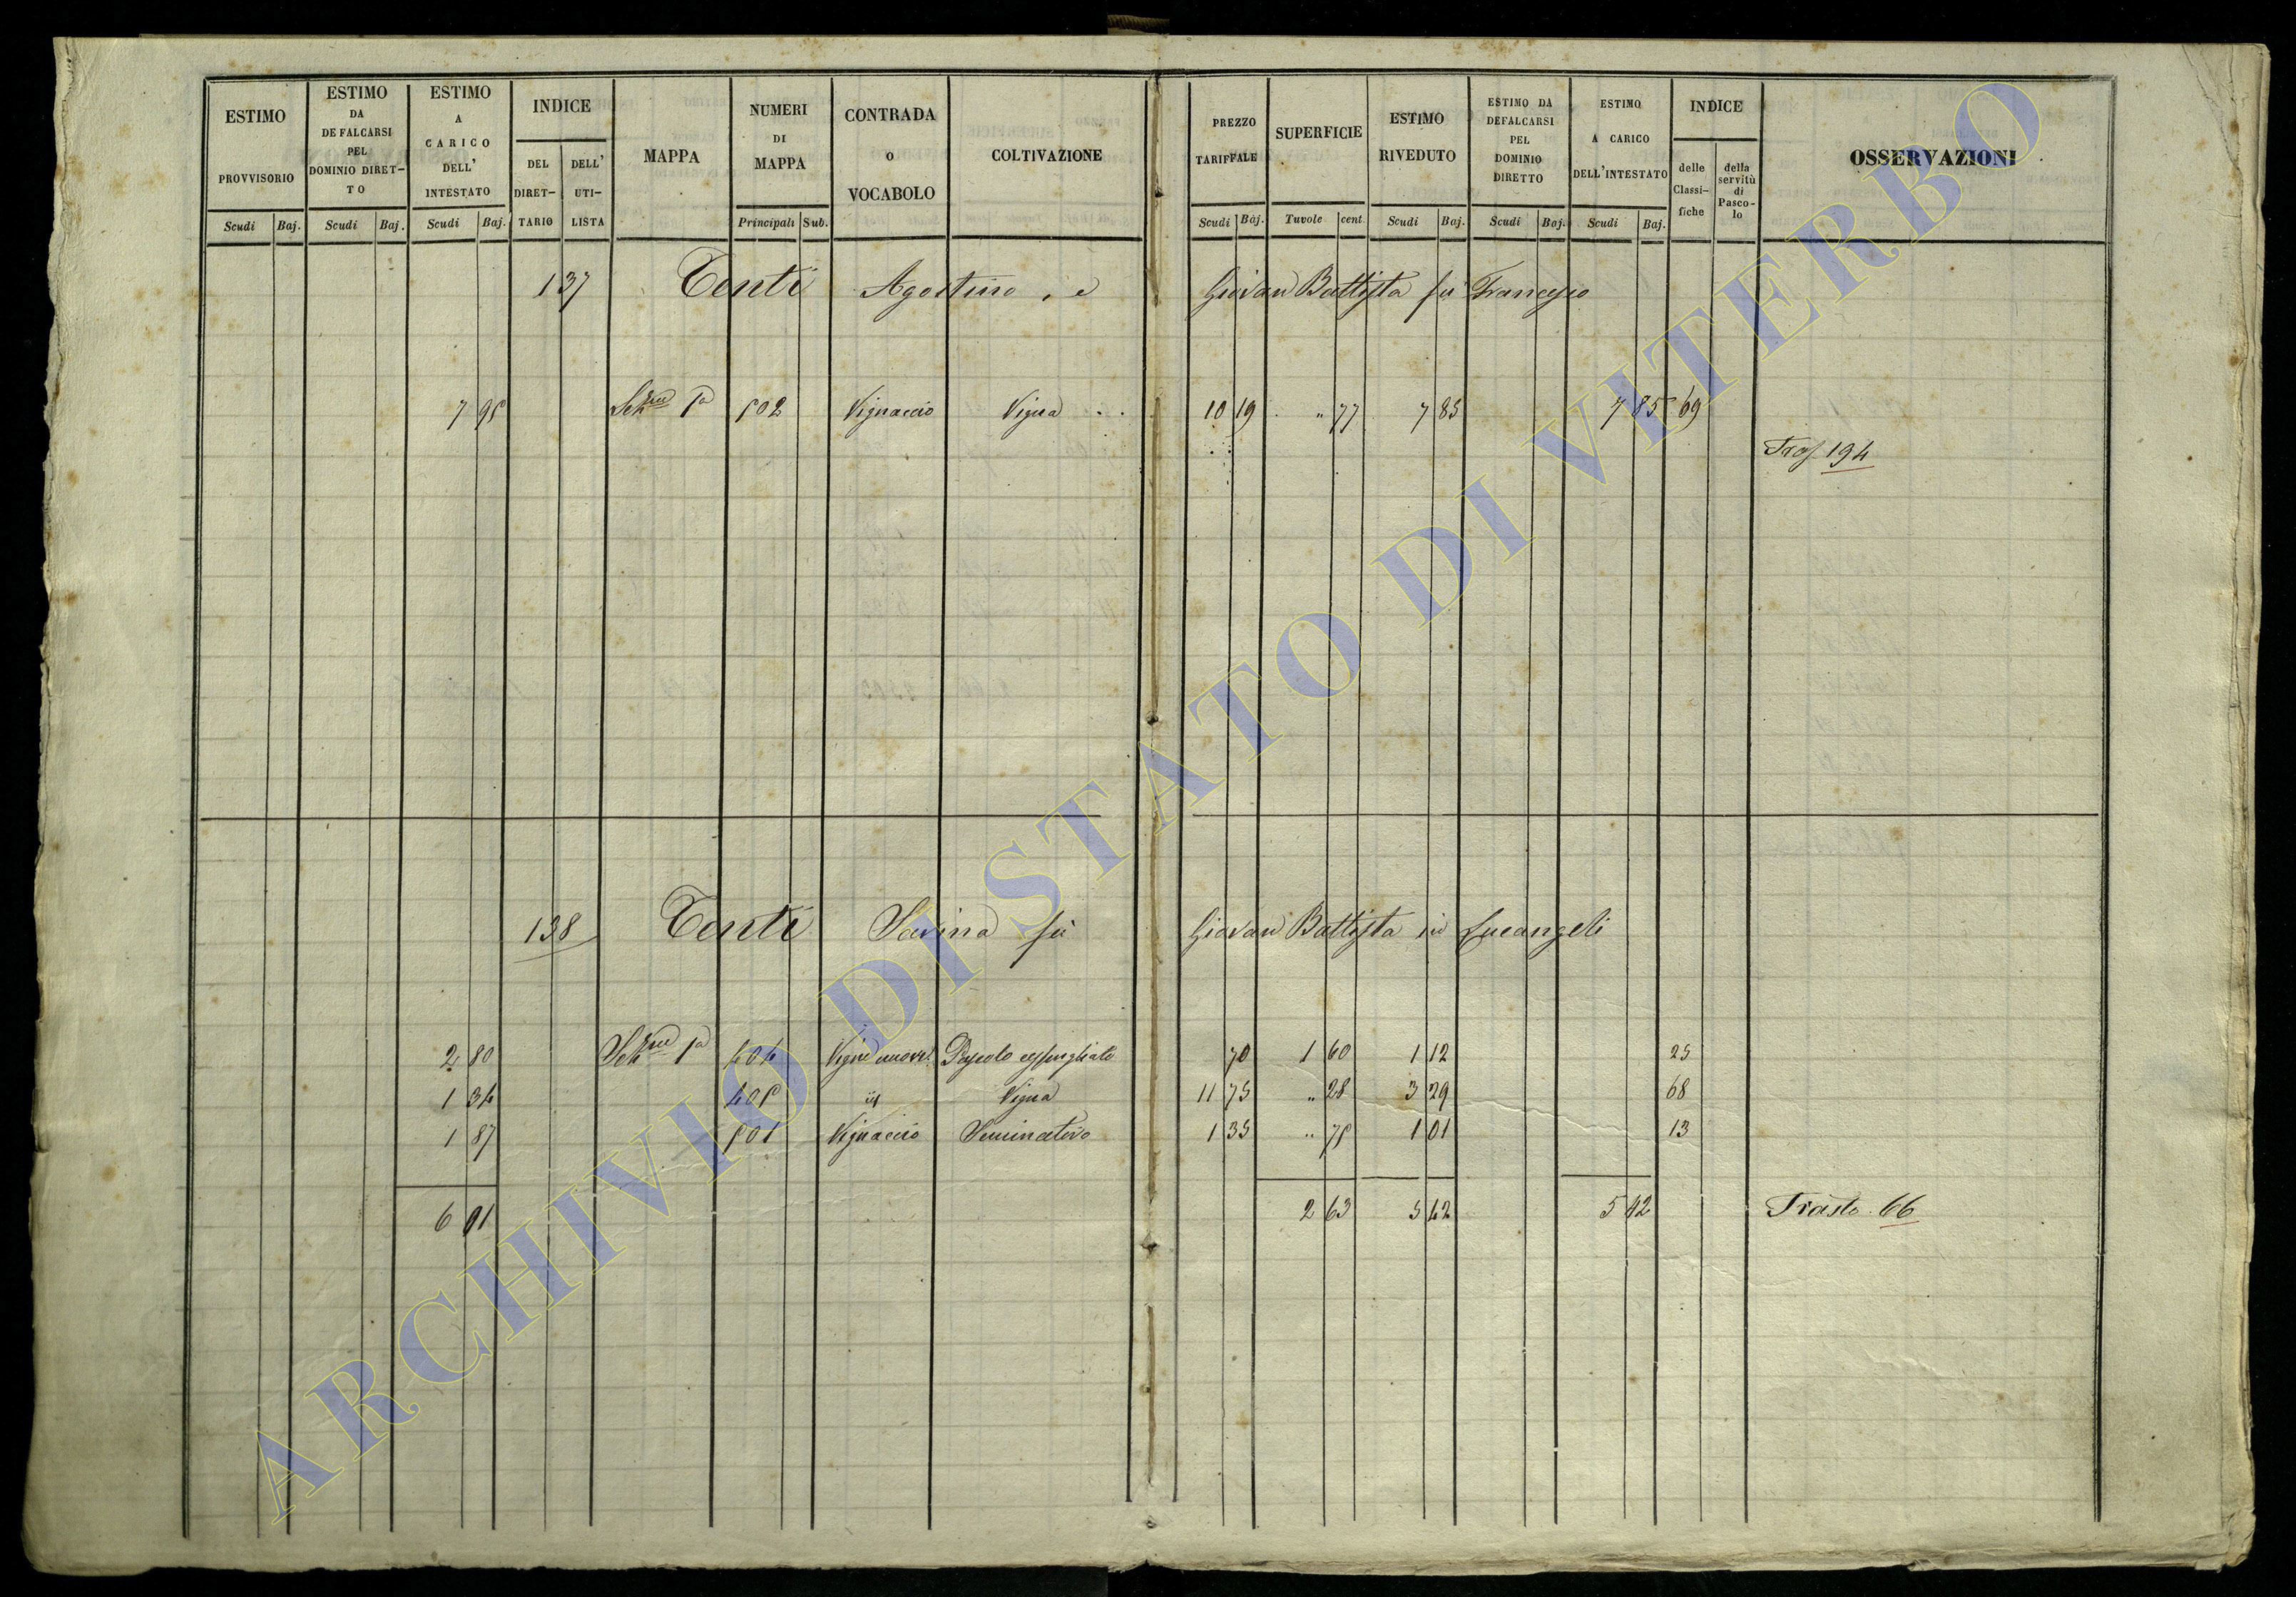 ESTIMO PROVVISORIO Scudi Baj.
ESTIMO DA DEFALCARSI PEL DOMINIO DIRET-TO Scudi Baj.
ESTIMO A CARICO DELL' INTESTATO Scudi Baj.
INDICE DEL DIRET-TARIO DELL' UTI-LISTA
MAPPA
NUMERI DI MAPPA Principali Sub.
CONTRADA O VOCABOLO
COLTIVAZIONE
PREZZO TARIFFALE Scudi Baj.
SUPERFICIE Tavole cent.
ESTIMO RIVEDUTO Scudi Baj.
ESTIMO DA DEFALCARSI PEL DOMINIO DIRETTO Scudi Baj.
ESTIMO A CARICO DELL'INTESTATO Scudi Baj.
INDICE delle Classi-fiche della servitù di Pasco-lo
OSSERVAZIONI
137 Tenti Agostino, e Giovan Battista fù Francesco
7 95 502 Vignaccio Vigna 10 19 " 77 7 85 7 85 69
194
138 Tenti Savina fù Giovan Battista in Lucangeli
2 80 404 Vigne nuove Pascolo cespugliato 70 1 60 1 12 25
1 34 405 id Vigna 11 75 " 28 3 29 68
1 87 501 Vignaccio Seminativo 1 35 " 75 1 01 13
6 01 2 63 5 42 5 42 Trasto 66
ARCHIVIO DI STATO DI VITERBO